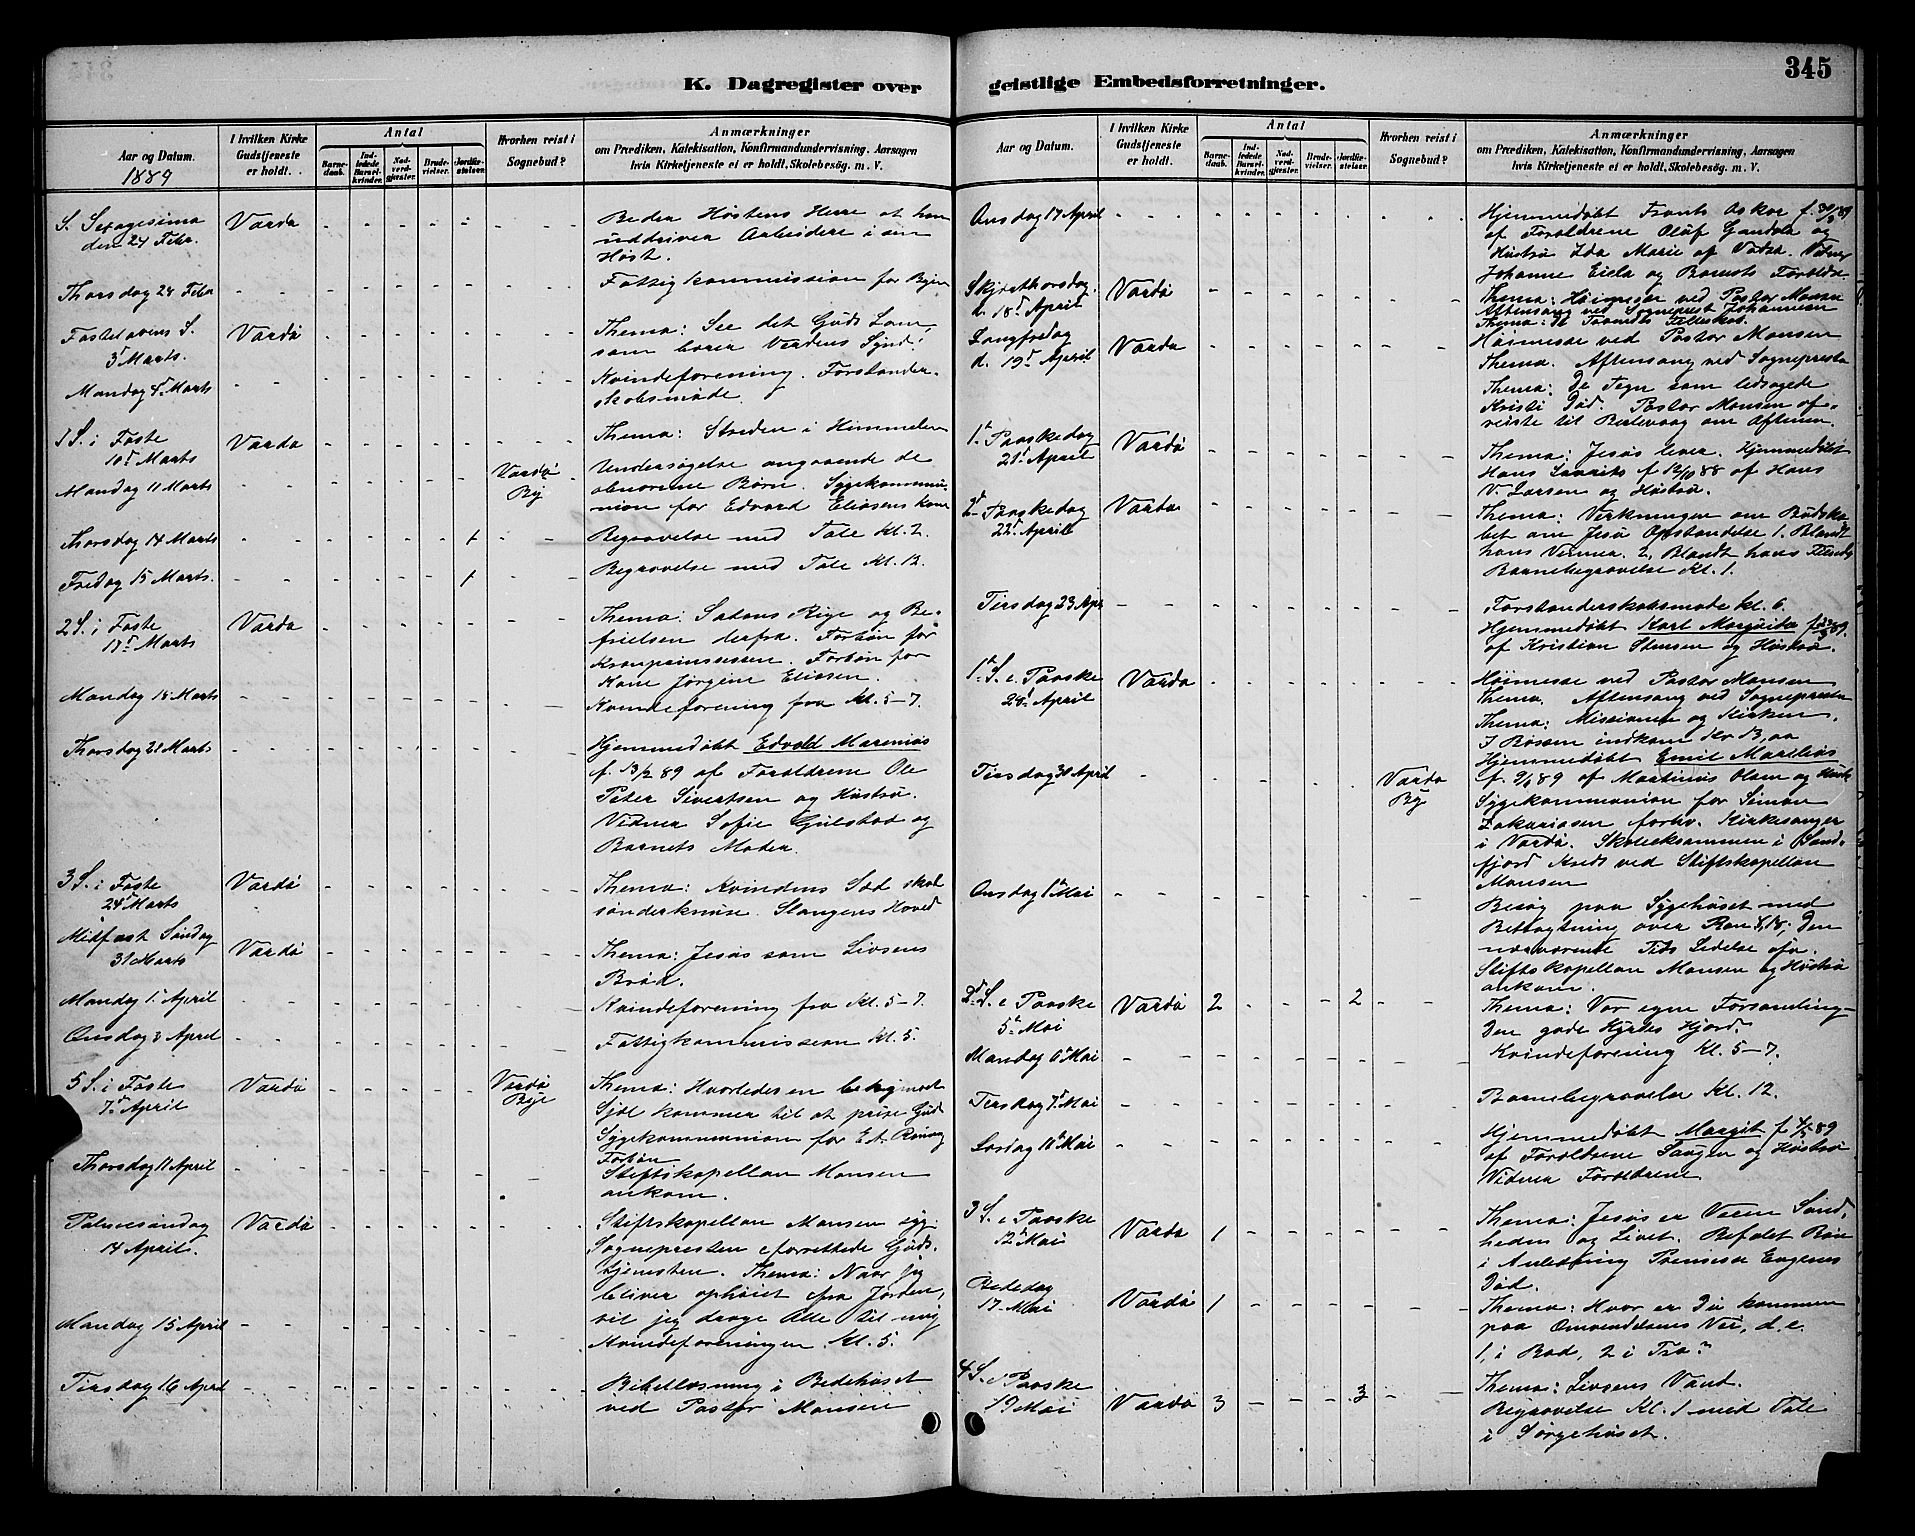 345
K. Dagregister over geistlige Embedsforretninger.
Aar og Datum. 1889
I hvilken Kirke Gudstjeneste er holdt.
Antal
Barnedaab.
Indledede Barselkvinder.
Nadverdgjæster.
Brudevielser.
Jordfæstelser.
Hvorhen reist i Sognebud?
Anmærkninger
om Prædiken, Katekisation, Konfirmandundervisning, Aarsagen
hvis Kirketjeneste ei er holdt, Skolebesøg. m. V.
S. Sexagesima Vardø Beder Høstens Herre at han
den 24 Febr. uddriver Arbeidere i sin
Høst.
Thorsdag 28 Febr Fattigkommission for Byen
Fastelavens S. Vardø Thema: See det Guds Lam,
3 Marts. som bærer Verdens Synd!
Mandag 4 Marts Kvindeforening. Forstander-
skabsmøde.
1 S. i Faste Vardø Thema: Striden i Himmelen
10 Marts
Mandag 11 Marts Vardø By Undersøgelse angaaende de
abnorme Børn. Sygekommu-
nion for Edvard Eliasens Kone
Thorsdag 14 Marts 1 Begravelse med Tale Kl. 2.
Fredag 15 Marts. 1 Begravelse med Tale Kl. 12.
2 S. i Faste Vardø Thema: Satans Rige og Be-
17 Marts frielsen derfra. Forbøn for
Kronprinsessen. Forbøn for
Kone Jørgine Eliasen.
Mandag 18 Marts Kvindeforening fra Kl. 5-7.
Thorsdag 21 Marts Hjemmedøbt Edvald Marenius
f. 13/2 89 af Forældrene Ole
Peter Sivertsen og Hustru.
Vidner Sofie Gulstad og
Barnets Moder.
3 S. i Faste Vardø Thema: Kvindens Sæd skal
24 Marts sønderknuse Slangens Hoved
Midfast Søndag Vardø Thema: Jesus som Livsens
31 Marts Brød.
Mandag 1 April Kvindeforening fra Kl. 5-7.
Onsdag 3 April Fattigkommission Kl. 5.
5 S. i Faste Vardø Vardø Bye Thema: Hvorledes en bekymret
7 April Sjæl kommer til at prise Gud
Sygekommunion for
Forbøn
Thorsdag 11 April Stiftskapellan Mansen
ankom.
Palmesøndag Vardø Stiftskapellan Mansen og
14 April. Sognepresten forrettede Guds-
tjenesten. Thema: Naar jeg
bliver ophøiet fra Jorden,
vil jeg drage Alle til mig
Mandag 15 April Kvindeforeningen Kl. 5.
Tirsdag 16 April Bibellæsning i Bedehuset
ved Pastor Mansen
Aar og Datum.
I hvilken Kirke Gudstjeneste er holdt.
Antal
Barnedaab.
Indledede Barselkvinder.
Nadverdgjæster.
Brudevielser.
Jordfæstelser.
Hvorhen reist i Sognebud?
Anmærkninger
om Prædiken, Katekisation, Konfirmandundervisning, Aarsagen
hvis Kirketjeneste ei er holdt, Skolebesøg. m. V.
Onsdag 17 April Hjemmedøbt Frants Oskar f. 30/3 89
af Forældrene Oluf og
Hustru Ida Marie af Vardø. Vidner
Johanne og Barnets Forældre
Skjærthorsdag Vardø Thema: Høimesse ved Pastor Mansen
d. 18 April Aftensang ved Sogneprest Johannesen
Thema:
Langfredag Vardø Høimesse ved Pastor Mansen
d. 19 April Thema. Aftensang ved Sognepresten
Thema: De Tegn som ledsagede
Kristi Død. Pastor Mansen af-
reiste til Berlevaag om Aftenen.
1 Paaskedag Vardø Thema: Jesus lever. Hjemmedøbt
21 April Hans Laurits f 12/10 88 af Hans
V. Larsen og Hustru.
2 Paaskedag Vardø Thema: Virkningen om Budska-
22 April bet om Jesu Opstandelse 1. Blandt
hans Venner. 2, Blandt hans Fiender
Barnebegravelse Kl. 1.
Tirsdag 23 Apr Forstanderskabsmøde kl. 6.
Hjemmedøbt Karl
af Kristian Stensen og Hustru.
1 S. e Paaske Vardø Høimesse ved Pastor Mansen
28 April Thema. Aftensang ved Sognepresten
Thema: Missionen og Kirken.
I Bøssen indkom Kr 13,00
Tirsdag 30 April Vardø By Hjemmedøbt Emil Marelius
f. 9/1 89 af Martinus Olsen og Hustr
Sygekommunion for Simon
Zakariasen forhv. Kirkesanger
i Vardø. Skoleeksammen i Sand-
fjord Kreds ved Stiftskapellan
Mansen
Onsdag 1 Mai Besøg paa Sygehuset med
Betragtning over Rom 8,18; Den
nærværende Tids Lidelse
Stiftskapellan Mansen og Hustru
ankom.
2 S. e Paaske Vardø 2 2 Thema: Vor egen Forsamling-
5 Mai Den gode Hyrdes Hjord.
Mandag 6 Mai Kvindeforening Kl. 5-7.
Tirsdag 7 Mai Barnebegravelse Kl. 12.
Lørdag 11 Mai Hjemmedøbt Margit
af Forældrene og Hustru
Vidner Forældrene
3 S. e Paaske Vardø 1 Thema: Jesus er Veien Sand-
12 Mai heden og Livet. Befalet Bøn
i Anledning Prinsesse Eugenes
Død.
Bededag Vardø 1 Thema: Hvor er Du kommen
17 Mai paa Omvendelsens Vei, d. e.
1, i Bod, 2 i Tro?
4 S. e Paaske Vardø 3 3 Thema: Livsens Vand.
19 Mai Begravelse Kl. 1 med Tale
i Sørgehuset.